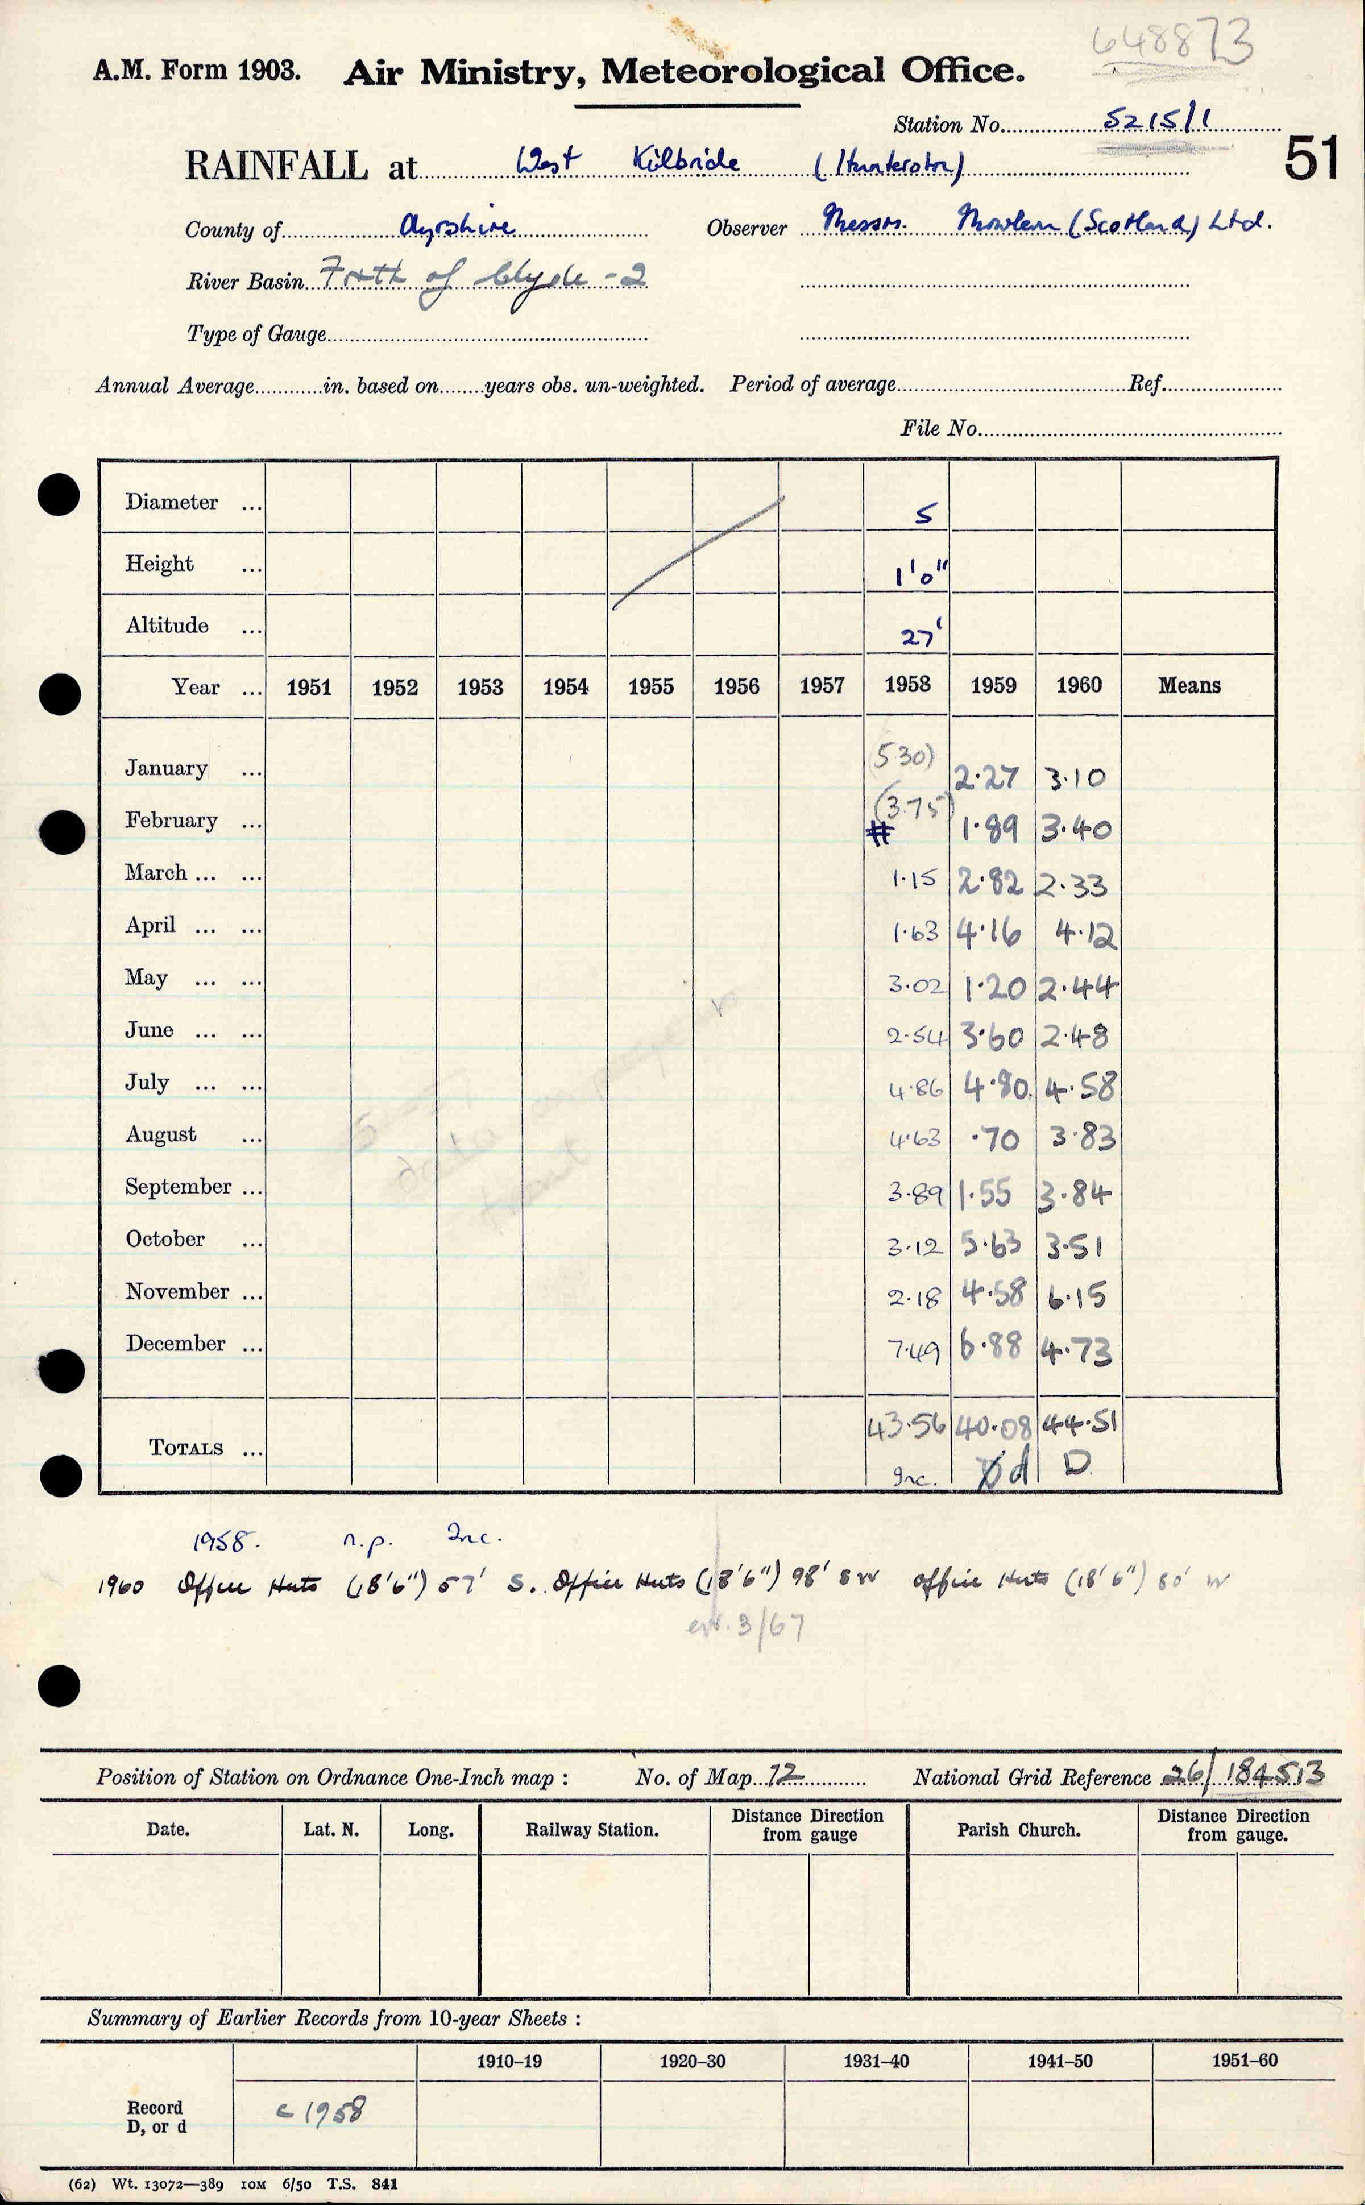 648873
A.M. Form 1903. Air Ministry, Meteorological Office.
Station No. 5215/1
51
RAINFALL at West Kilbride (Hunterston)
County of Ayrshire Observer Messrs. Mowlem (Scotland) Ltd.
River Basin Firth of Clyde - 2
Type of Gauge
Annual Average in. based on years obs. un-weighted. Period of average Ref.
File No.
Diameter ... 5
Height ... 1'0"
Altitude ... 27'
Year ... 1951 1952 1953 1954 1955 1956 1957 1958 1959 1960 Means
January ... (5.30) 2.27 3.10
February ... # (3.75) 1.89 3.40
March ... ... 1.15 2.82 2.33
April ... ... 1.63 4.16 4.12
May ... ... 3.02 1.20 2.44
June ... ... 2.54 3.60 2.48
July ... ... 4.86 4.80 4.58
August ... 4.63 .70 3.83
September ... 3.89 1.55 3.84
October ... 3.12 5.63 3.51
November ... 2.18 4.58 6.15
December ... 7.49 6.88 4.73
TOTALS ... 43.56 40.08 44.51
Inc. d D
1958. n.p. Inc.
1960 Office Huts (18'6") 57' S. Office Huts (18'6") 98' SW Office Huts (18'6") 80' W
3/67
Position of Station on Ordnance One-Inch map : No. of Map 72 National Grid Reference 26/184513
Date. Lat. N. Long. Railway Station. Distance Direction from gauge Parish Church. Distance Direction from gauge.
Summary of Earlier Records from 10-year Sheets :
1910–19 1920–30 1931–40 1941–50 1951–60
Record D, or d c 1958
(62) Wt. 13072—389 10M 6/50 T.S. 841